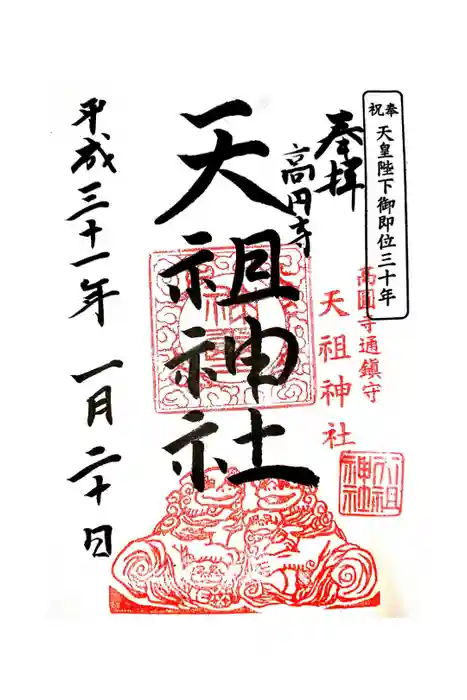 奉祝 天皇陛下御即位三十年
奉拝
高円寺
高圓寺通鎮守
天祖神社
天祖神社
天祖神社
平成三十一年 一月二十日